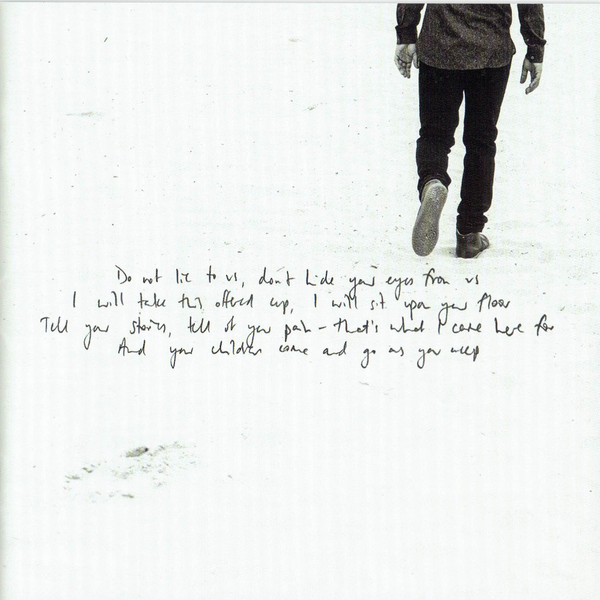 Do not lie to us, don't hide your eyes from us
I will take this offered cup, I will sit upon your floor
Tell your stories, tell of your pain – that's what I came here for
And your children come and go as you weep